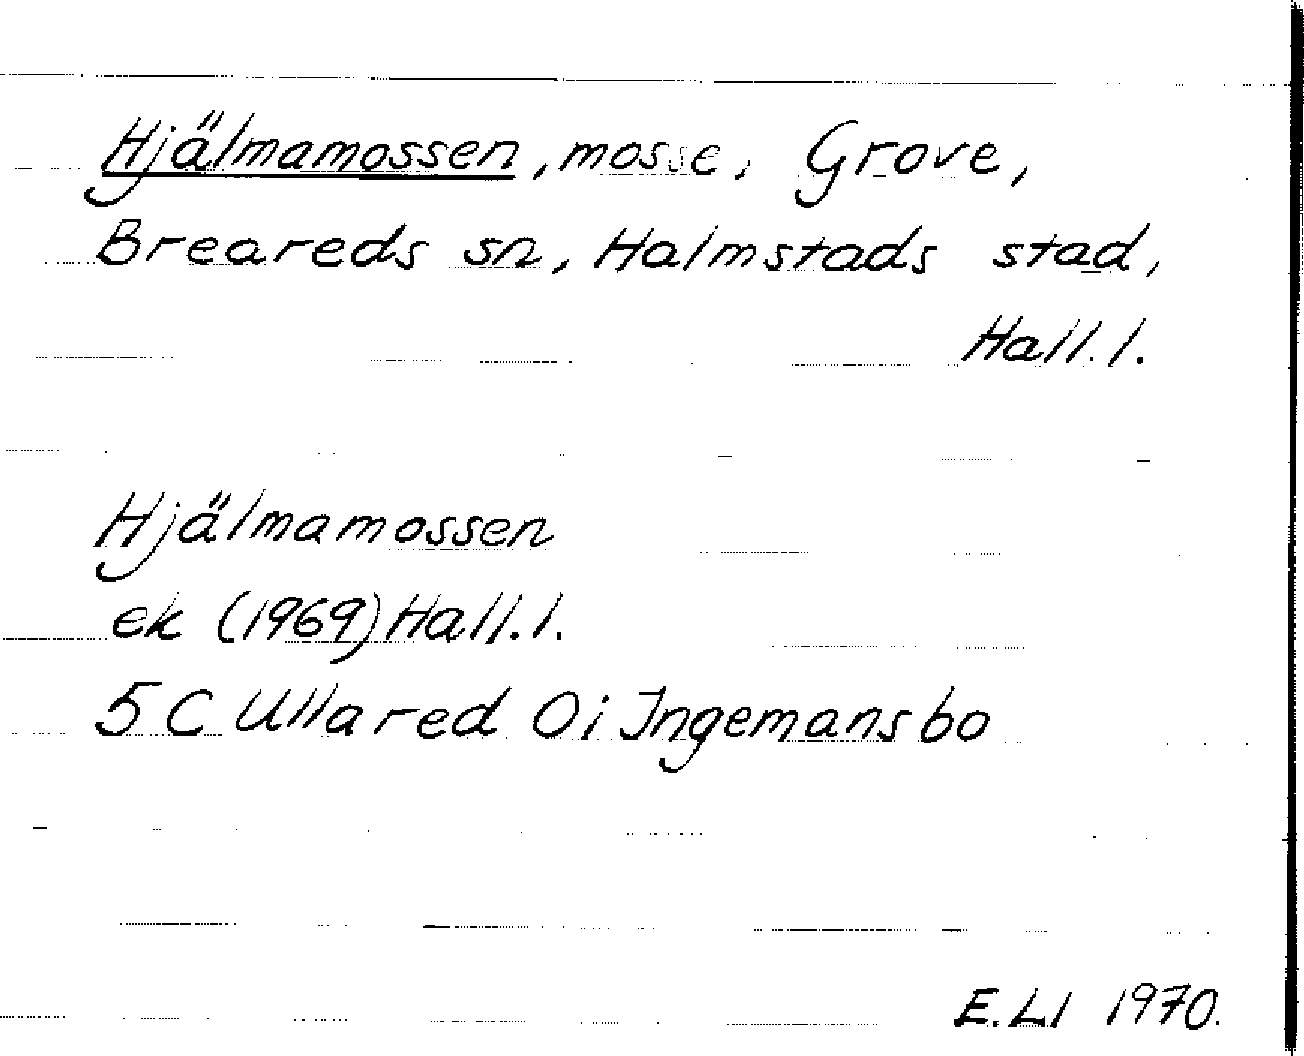 Hjälmamossen, mosse, Grove,
Breareds sn, Halmstads stad,
Hall.l.
Hjälmamossen
ek (1969) Hall.l.
5 C Ullared Oi Ingemansbo
E.Ll 1970.